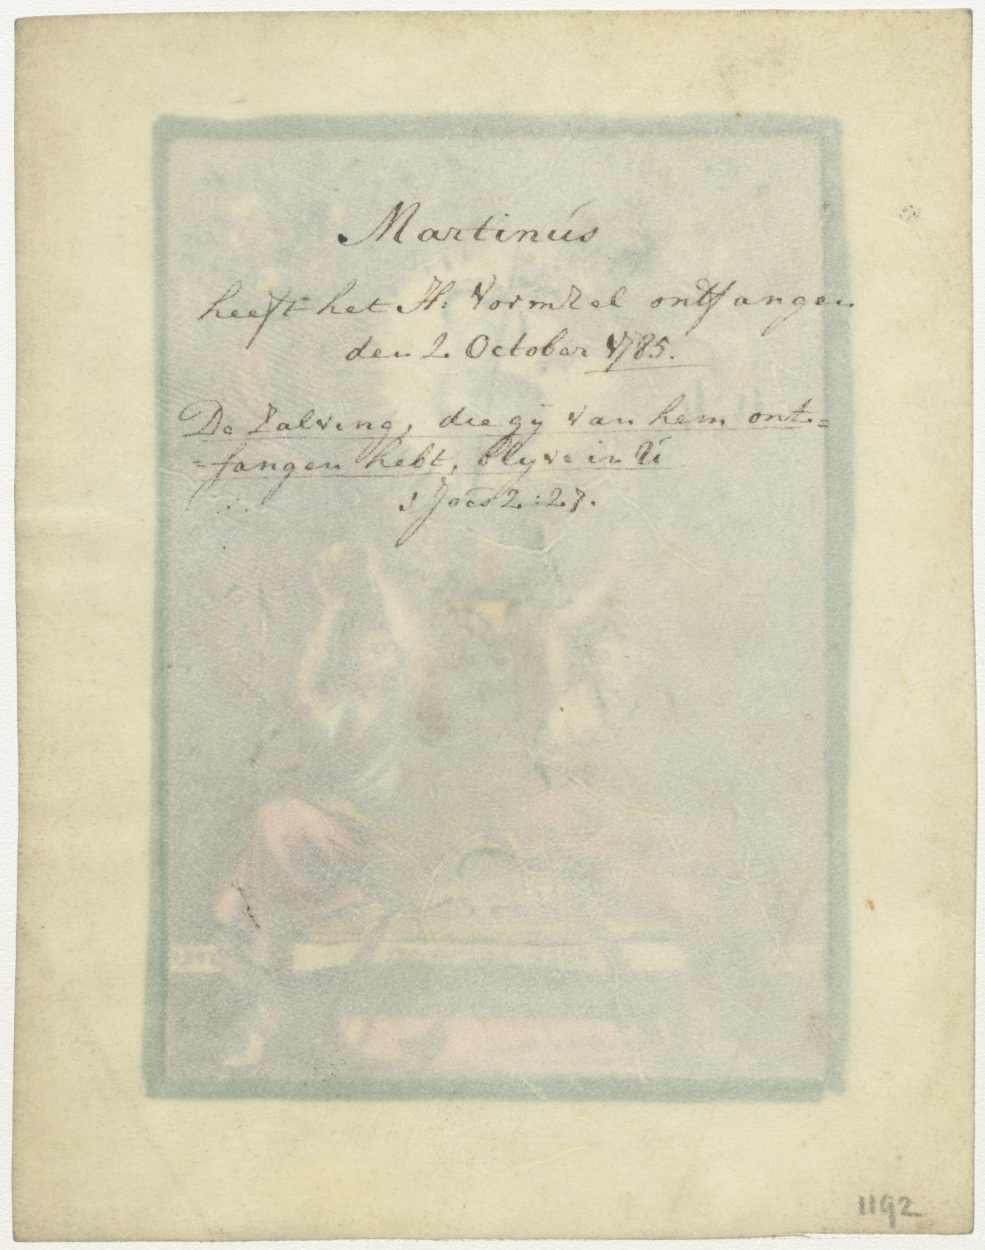 Martinús
heeft het H: Vormzel ontfangen
den 2 October 1785.
De Zalving, die gÿ van hem ont=
=fangen hebt, blyve in Ú
1 Joës 2:27.
1192